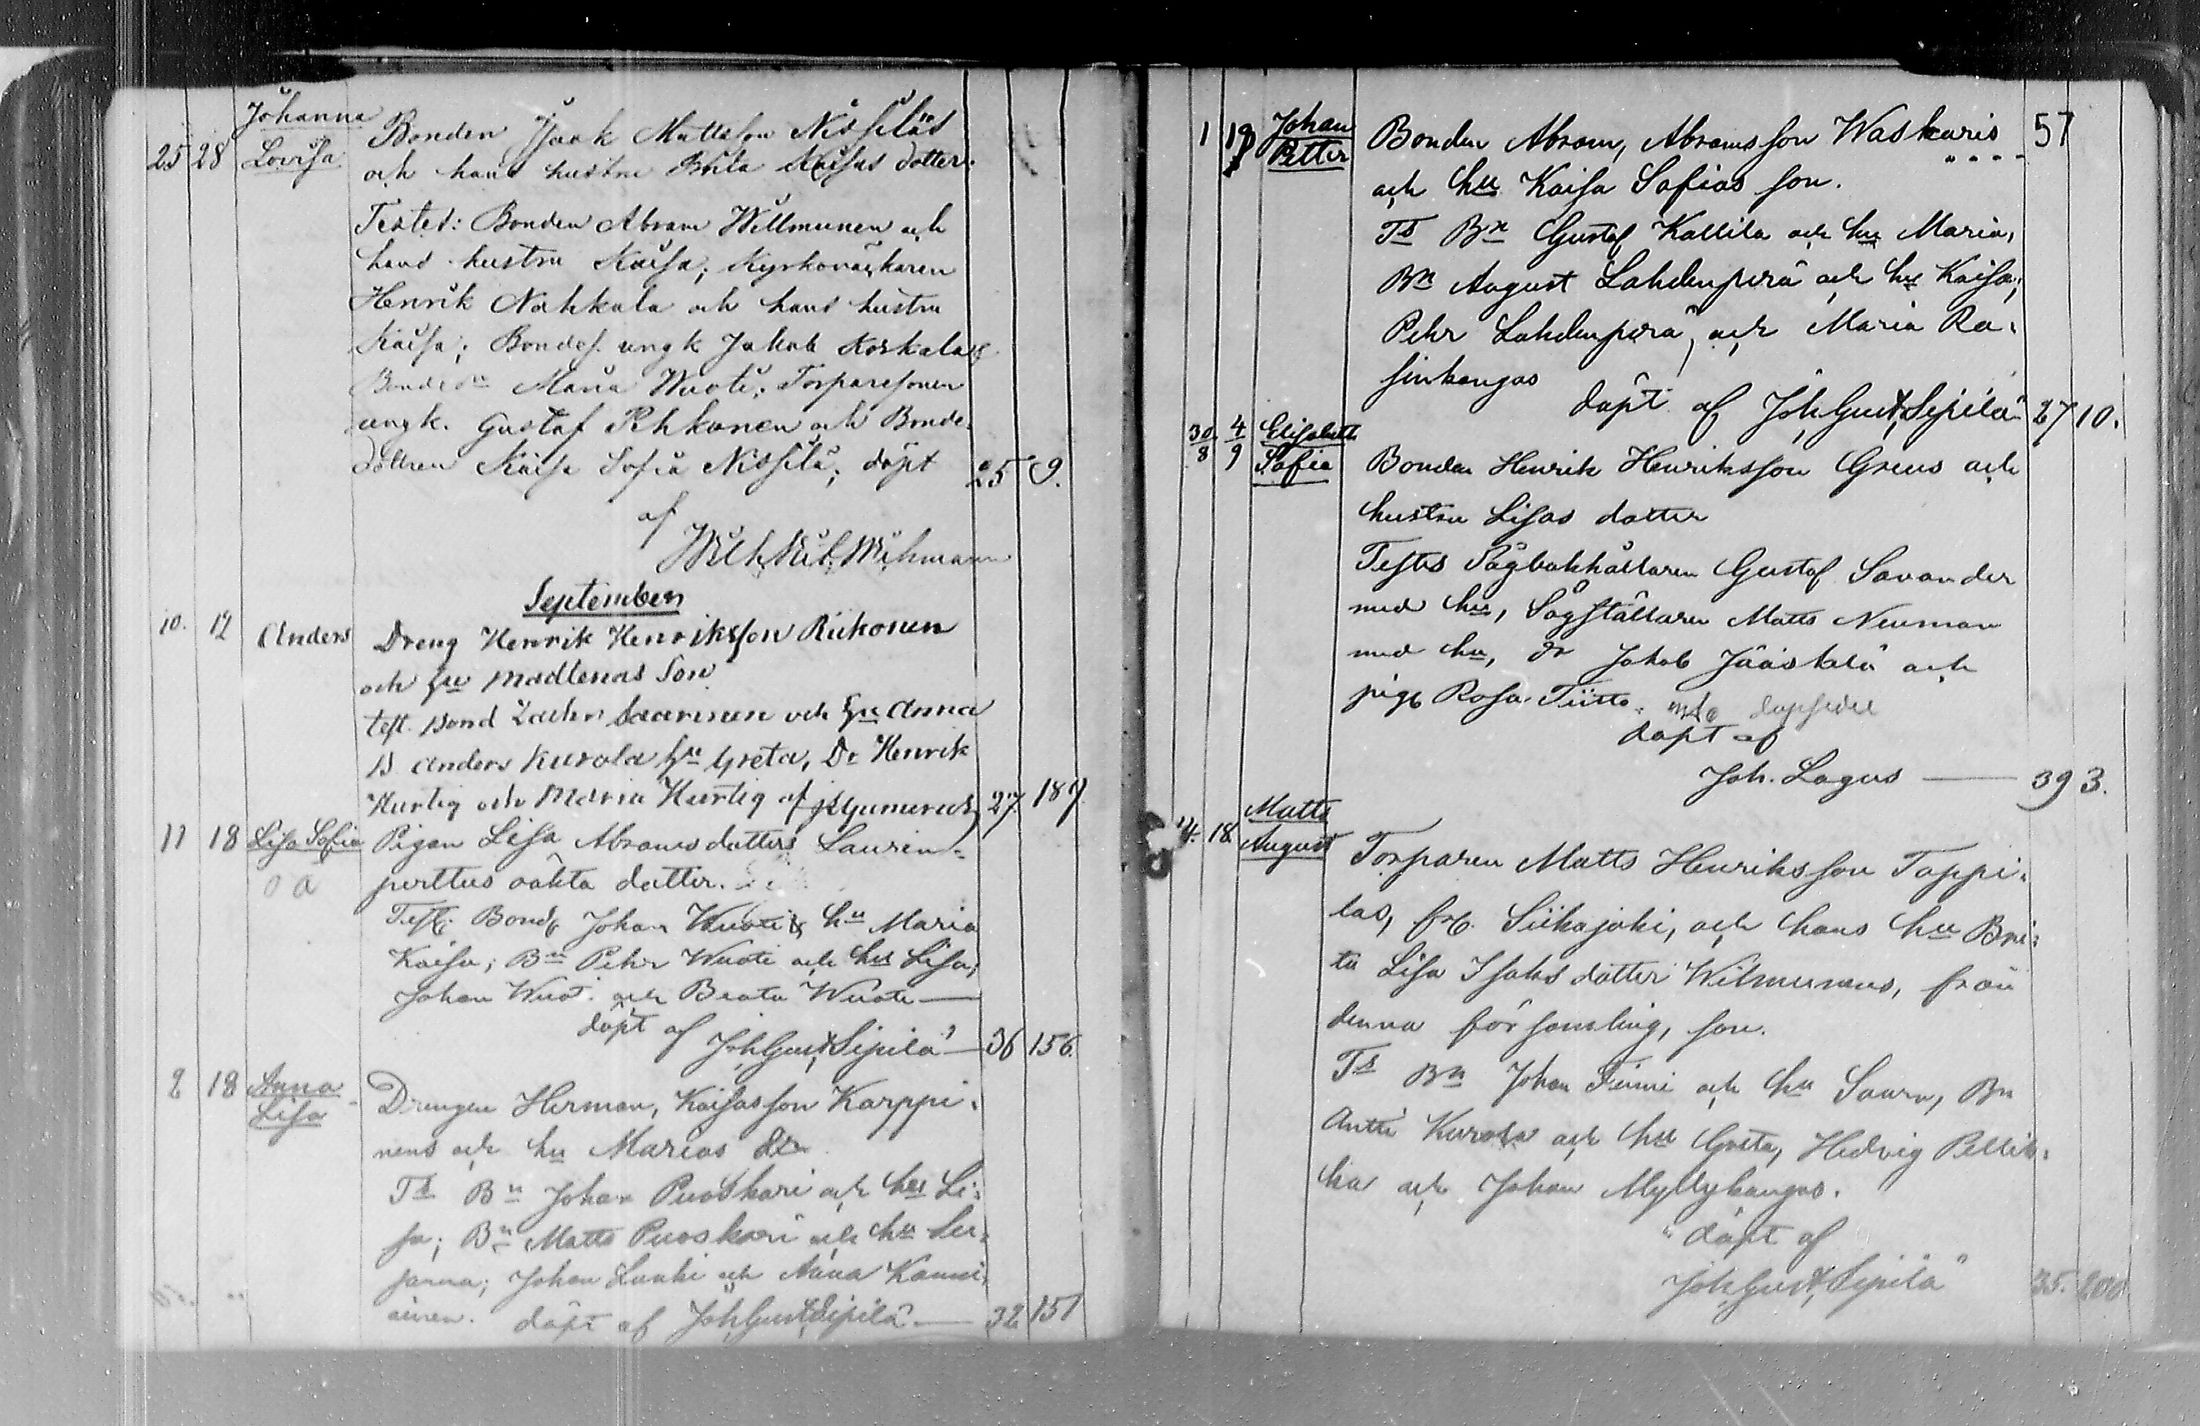 Johanna
25 28 Lovisa Bonden Isaak Mattsson Nissiläs
och hans hustru Brita Kaisas dotter.
Testes: Bonden Abram Willmunen och
hans hustru Kaisa; Kyrkoväcktaren
Henrik Nahkala och hans hustru
Kaisa; Bondes. ungk Jakob Koskela &
Maria Wuoti; Torparesonen
ungk. Gustaf Pehkonen och Bonde-
dottren Kaisa Sofia Nissilä; döpt 25 9.
af
September
10. 12 Anders Dreng Henrik Henriksson Riikonen
och hu Madlenas Son
test. Bond Zachr Saarinen och hu Anna
B Anders Kurola hu Greta, Dr Henrik
Hurtig och Maria Hurtig af 27. 189
11 18 Lisa Sofia Pigan Lisa Abramsdotters Laurin-
o ä perttus oäkta dotter.
Test: Bond Johan Wuoti & hu Maria
Kaisa; Bn Pehr Wuoti och hu Lisa;
Johan Wuot. och Beata Wuoti —
döpt af Joh Gust Sipilä — 36 156.
2 18 Anna Drengen Herman, Kaisasson Karppi-
Lisa nens och hu Marias dtr
Ts Bn Johan Puoskari och hu Li-
sa; Bn Matts Puoskari och hu Su-
sanna; Johan Luuki och Anna Kanni-
ainen. döpt af Joh Gust Sipilä — 32 151
1 19 Johan Petter Bonden Abram, Abramsson Waskaris 57
och hu Kaisa Sofias son.
Ts Bn Gustaf Kallila och hu Maria,
Bn August Lahdenperä och hu Kaisa;
Pehr Lahdenperä, och Maria Ra-
sinkangas
döpt af Joh Gust Sipilä 27 10.
30/8 4/9 Elisabeth
Sofia Bonden Henrik Henriksson Greus och
hustru Lisas dotter
Testes Sågbokhållaren Gustaf Savander
med hu, Sågställaren Matts Neuman
med hu, dr Jakob Jääskelä och
pig Rosa Tiitto.
döpt af
Joh. Lagus — 39 3.
Matts
14. 18. August Torparen Matts Henriksson Tappi-
las, frå Siikajoki, och hans hu Bri-
ta Lisa Isaksdotter Wilmunens, från
denna församling, son.
Ts Bn Johan Tuomi och hu Saara, Bn
Antti Kurola och hu Greta, Hedvig Pellik-
ka och Johan Myllykangas.
döpt af
Joh Gust Sipilä 35. 200